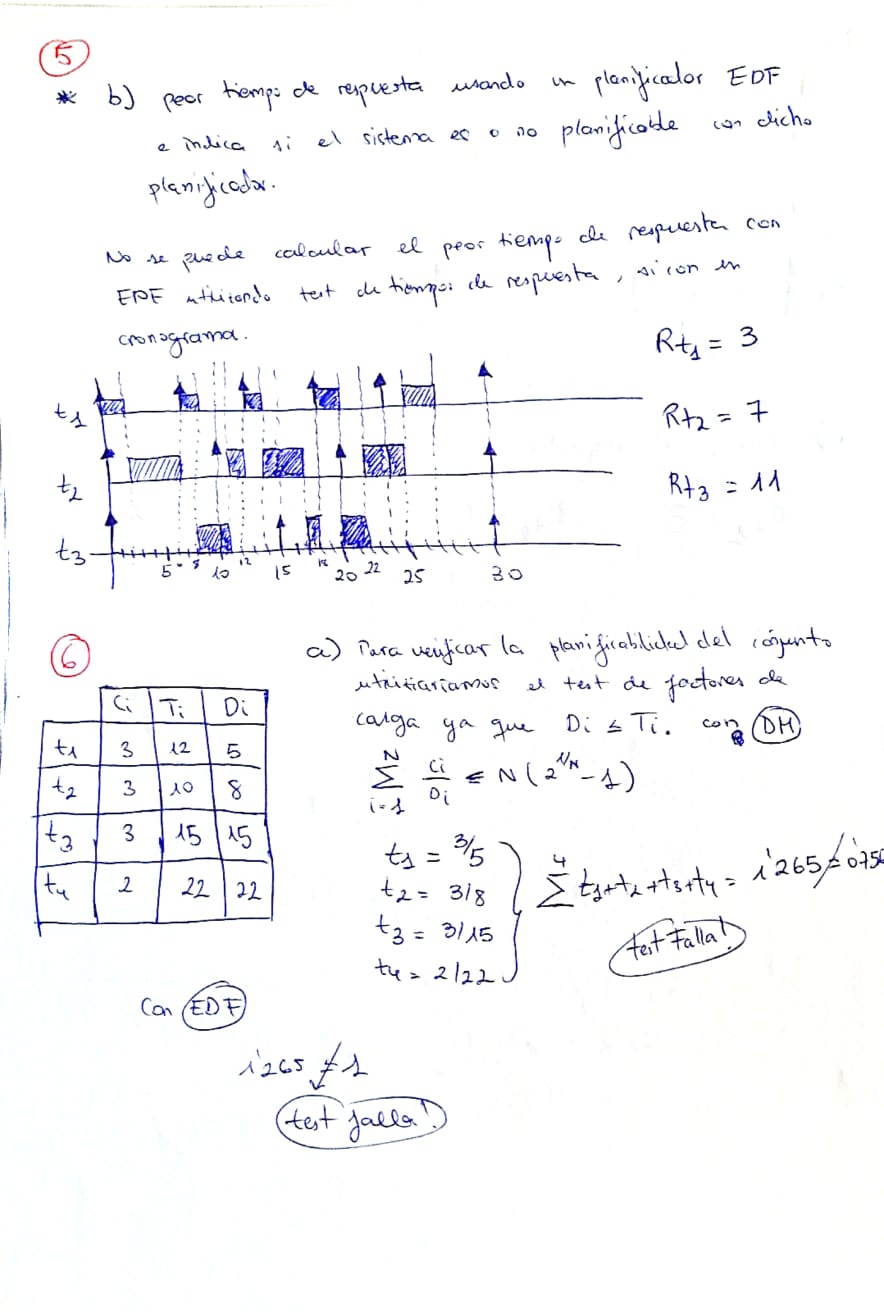 5
* b) peor tiempo de respuesta usando un planificador EDF
e indica si el sistema es o no planificable con dicho
planificador.
No se puede calcular el peor tiempo de respuesta con
EDF utilizando test de tiempos de respuesta, si con un
cronograma.
Rt1 = 3
Rt2 = 7
Rt3 = 11
t1
t2
t3
5 8 10 12 15 18 20 22 25 30
6
a) Para verificar la planificabilidad del conjunto
utilizariamos el test de factores de
carga ya que Di ≤ Ti. con DM
Ci Ti Di
t1 3 12 5
t2 3 10 8
t3 3 15 15
t4 2 22 22
N Σ i=1 Ci/Di ≤ N(2^1/N - 1)
t1 = 3/5
t2 = 3/8
t3 = 3/15
t4 = 2/22
4 Σ t1+t2+t3+t4 = 1'265 ≠ 0'756
test Falla!
Con EDF
1'265 ≠ 1
test falla!